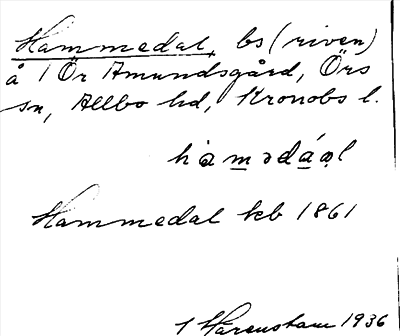 Hammedal, bs (riven)
å 1 Ör Amundsgård, Örs
sn, Allbo hd, Kronobs l.
hàm̲ədá̲ạl
Hammedal kb 1861
1936